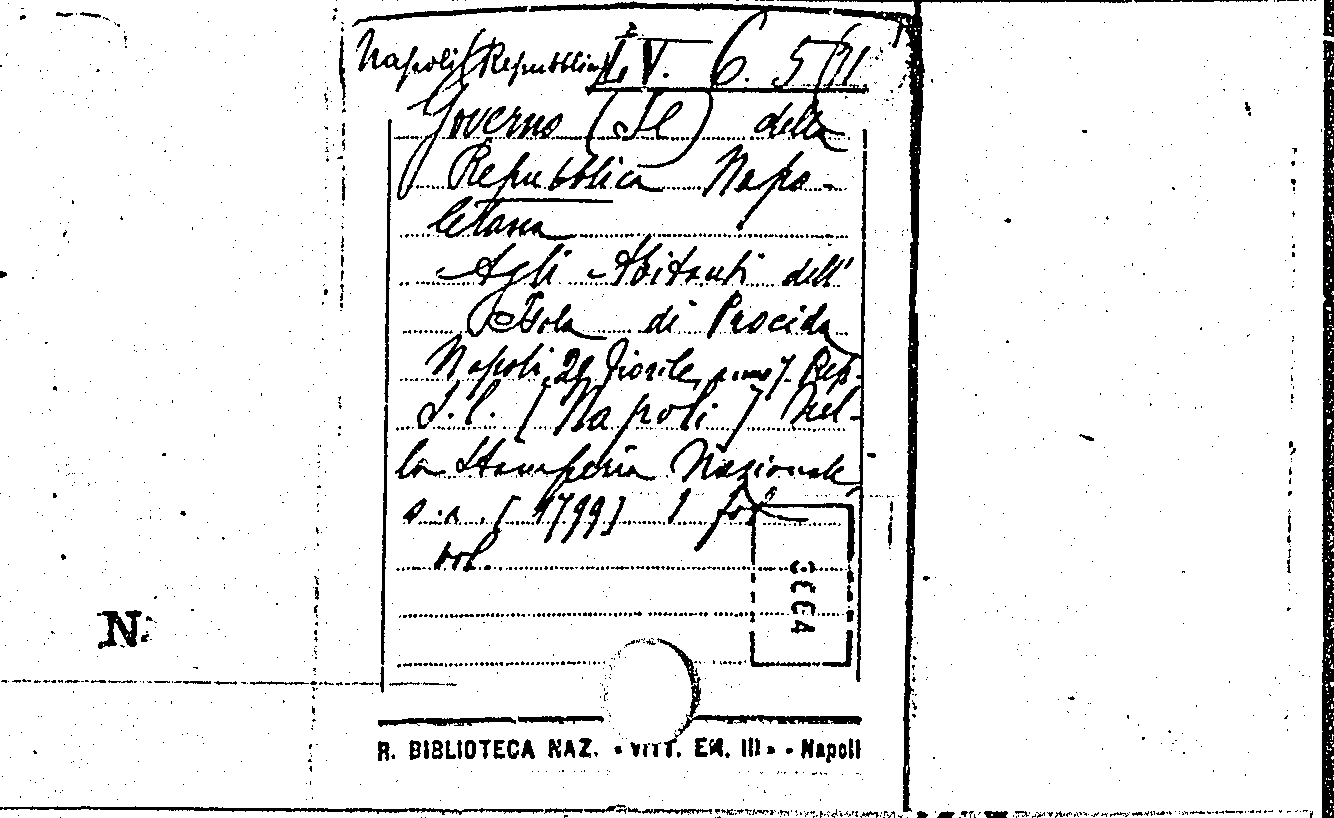 Napoli (Repubblica) L. V. 6. 5(71
Governo (Il) della
Repubblica Napo-
letana
Agli Abitanti dell'
Isola di Procida
Napoli 29 Fiorile, anno 7. Rep.
S. l. [Napoli] Nel-
la Stamperia Nazionale
s. a. [1799] 1 fol.
vol.
N.
R. BIBLIOTECA NAZ. « VITT. EM. III » - Napoli